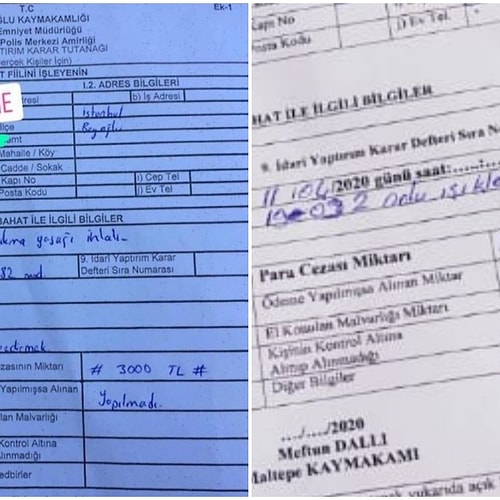 T.C
Ek-1
OĞLU KAYMAKAMLIĞI
Emniyet Müdürlüğü
Polis Merkezi Amirliği
TIRIM KARAR TUTANAĞI
erçek Kişiler İçin)
T FİİLİNİ İŞLEYENİN
I.2. ADRES BİLGİLERİ
E
resi
b) İş Adresi
İstanbul
ilçe
Beyoğlu
Semt
Mahalle / Köy
Cadde / Sokak
Kapı No
i) Cep Tel
Posta Kodu
j) Ev Tel
BAHAT İLE İLGİLİ BİLGİLER
yasağı ihlali
82 md
9. İdari Yaptırım Karar
Defteri Sıra Numarası
ezasının Miktarı
# 3000 TL #
Yapılmışsa Alınan
Yapılmadı.
lan Malvarlığı
Kontrol Altına
lınmadığı
edbirler
Kapı No
Posta Kodu
i) Ev Tel
HAT İLE İLGİLİ BİLGİLER
9. İdari Yaptırım Karar Defteri Sıra Numa
11/04/2020 günü saat:
Para Cezası Miktarı
Ödeme Yapılmışsa Alınan Miktar
El Konulan Malvarlığı Miktarı
Kişinin Kontrol Altına
Alınıp Alınmadığı
Diğer Bilgiler
.../.../2020
Meftun DALLI
Maltepe KAYMAKAMI
yukarıda açık